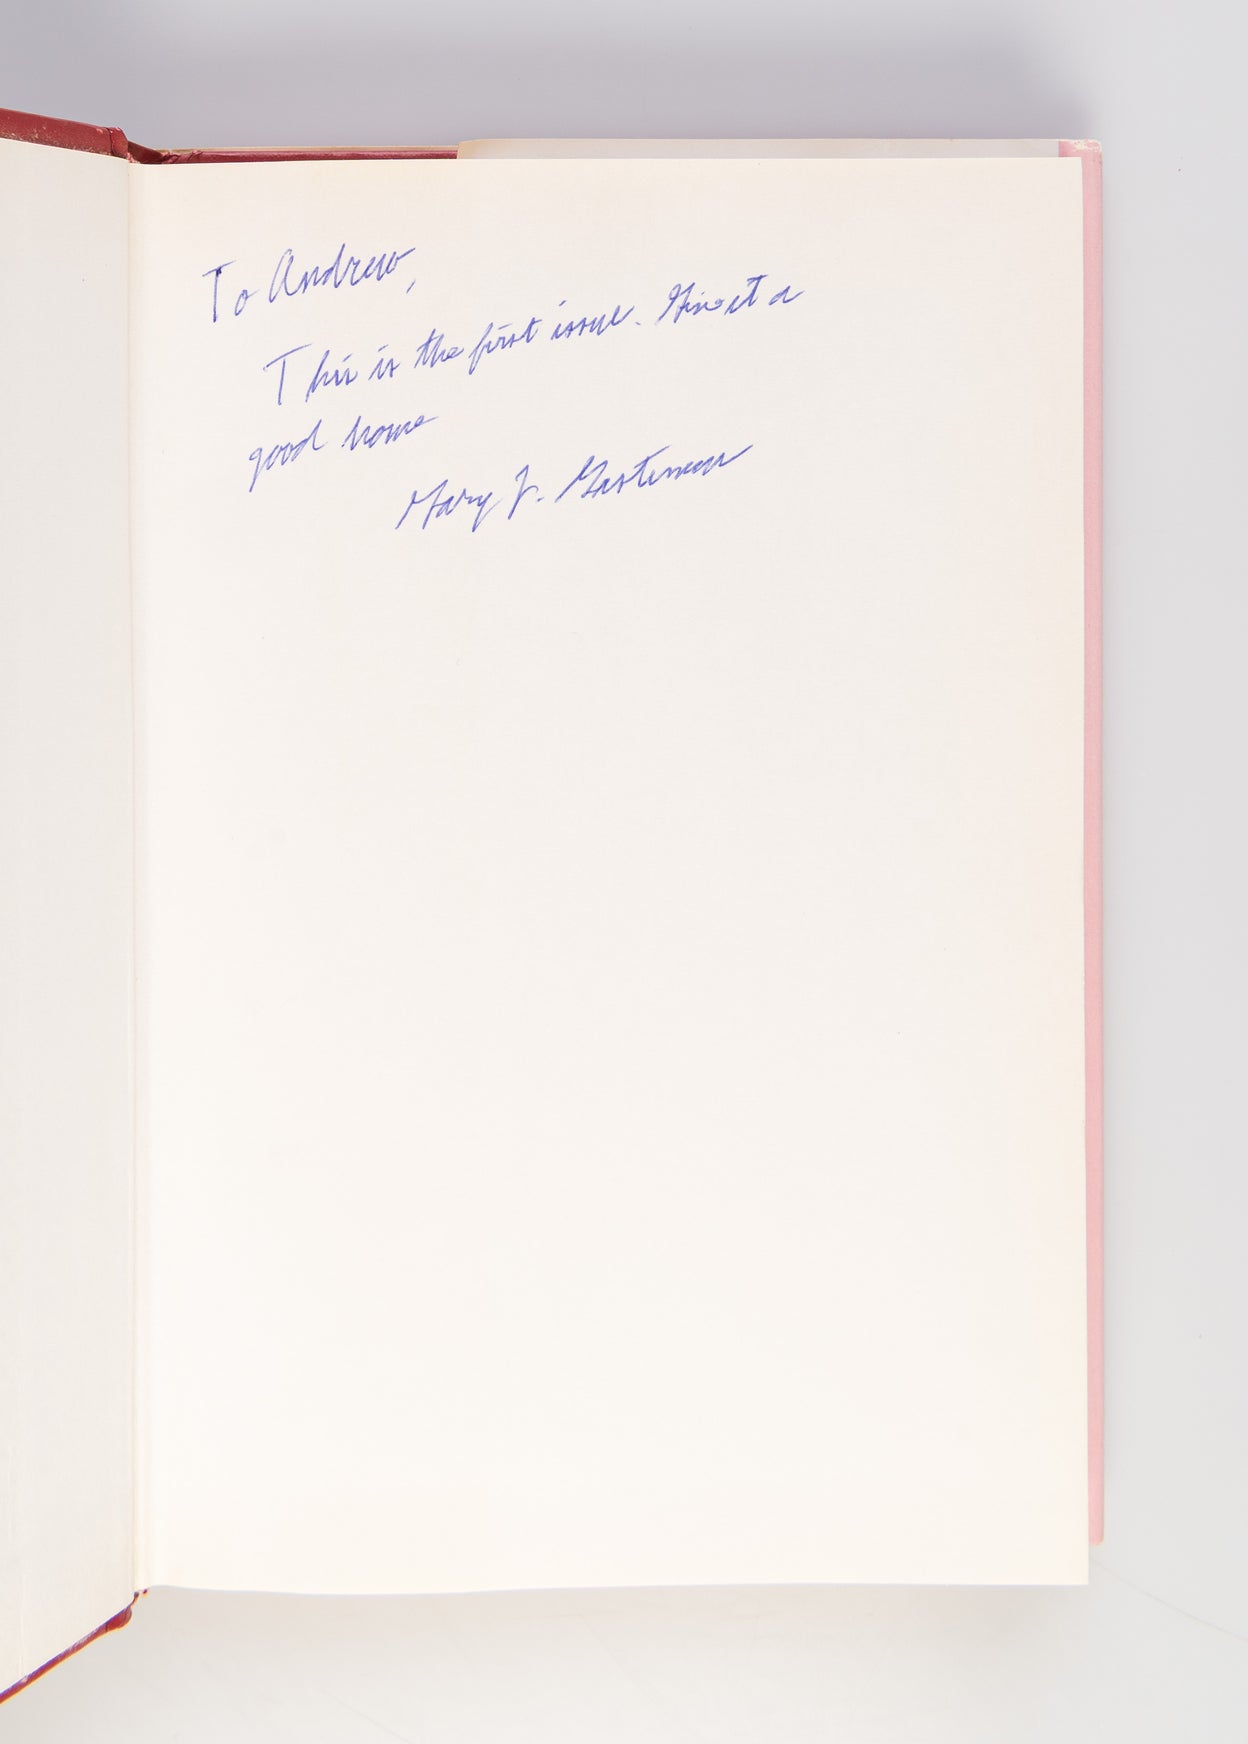 To Andrew,
This is the first issue. Give it a
good home
Mary J.